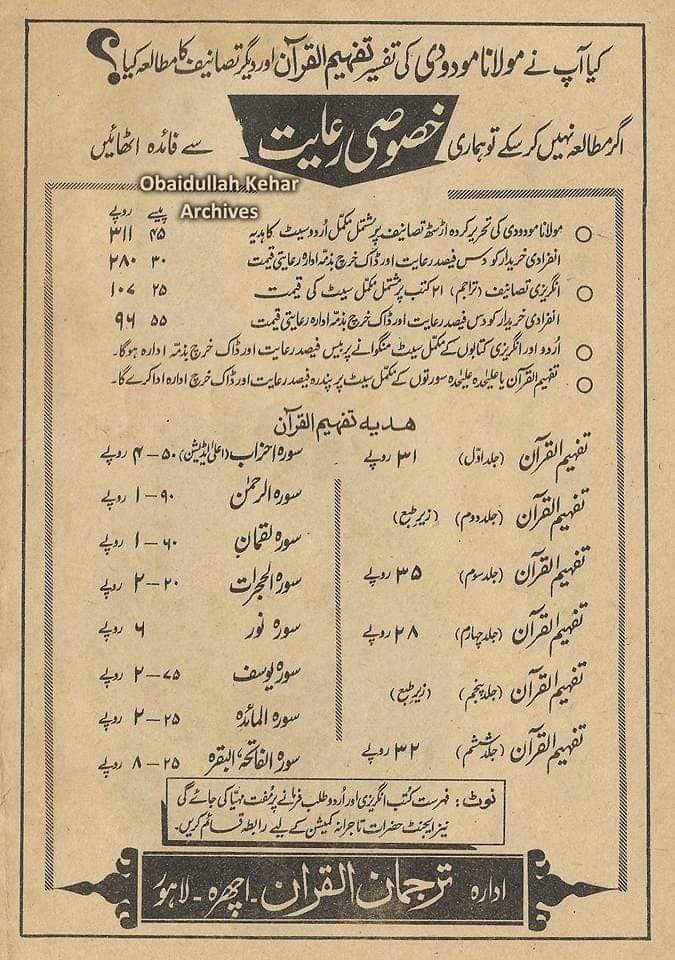 کیا آپ نے مولانا مودودی کی تفسیر تفہیم القرآن اور دیگر تصانیف کا مطالعہ کیا؟
اگر مطالعہ نہیں کر سکے تو ہماری خصوصی رعایت سے فائدہ اٹھائیں
Obaidullah Kehar
Archives
پیسے روپے
مولانا مودودی کی تحریر کردہ اڑسٹھ تصانیف پر مشتمل مکمل اُردو سیٹ کا ہدیہ ۴۵ ۳۱۱
انفرادی خریدار کو دس فیصد رعایت اور ڈاک خرچ بذمہ ادارہ رعایتی قیمت ۳۰ ۲۸۰
انگریزی تصانیف (تراجم) ۲۱ کتب پر مشتمل مکمل سیٹ کی قیمت ۲۵ ۱۰۷
انفرادی خریدار کو دس فیصد رعایت اور ڈاک خرچ بذمہ ادارہ رعایتی قیمت ۵۵ ۹۶
اُردو اور انگریزی کتابوں کے مکمل سیٹ منگوانے پر بیس فیصد رعایت اور ڈاک خرچ بذمہ ادارہ ہوگا۔
تفہیم القرآن یا علیحدہ علیحدہ سورتوں کے مکمل سیٹ پر پندرہ فیصد رعایت اور ڈاک خرچ ادارہ ادا کرے گا۔
ھدیہ تفہیم القرآن
تفہیم القرآن (جلد اوّل) ۳۱ روپے
تفہیم القرآن (جلد دوم) (زیر طبع)
تفہیم القرآن (جلد سوم) ۳۵ روپے
تفہیم القرآن (جلد چہارم) ۲۸ روپے
تفہیم القرآن (جلد پنجم) (زیر طبع)
تفہیم القرآن (جلد ششم) ۳۲ روپے
سورہ احزاب (اعلیٰ ایڈیشن) ۵۰ – ۴ روپے
سورہ الرحمٰن ۹۰ – ۱ روپے
سورہ لقمان ۶۰ – ۱ روپے
سورہ الحجرات ۲۰ – ۲ روپے
سورہ نور ۶ روپے
سورہ یوسف ۷۵ – ۲ روپے
سورہ المائدہ ۲۵ – ۲ روپے
سورہ الفاتحہ، البقرہ ۲۵ – ۸ روپے
نوٹ: فہرست کتب انگریزی اور اُردو طلب فرمانے پر مفت مہیّا کی جائے گی
نیز ایجنٹ حضرات تاجرانہ کمیشن کے لیے رابطہ قائم کریں۔
ادارہ ترجمان القرآن - اچھرہ - لاہور